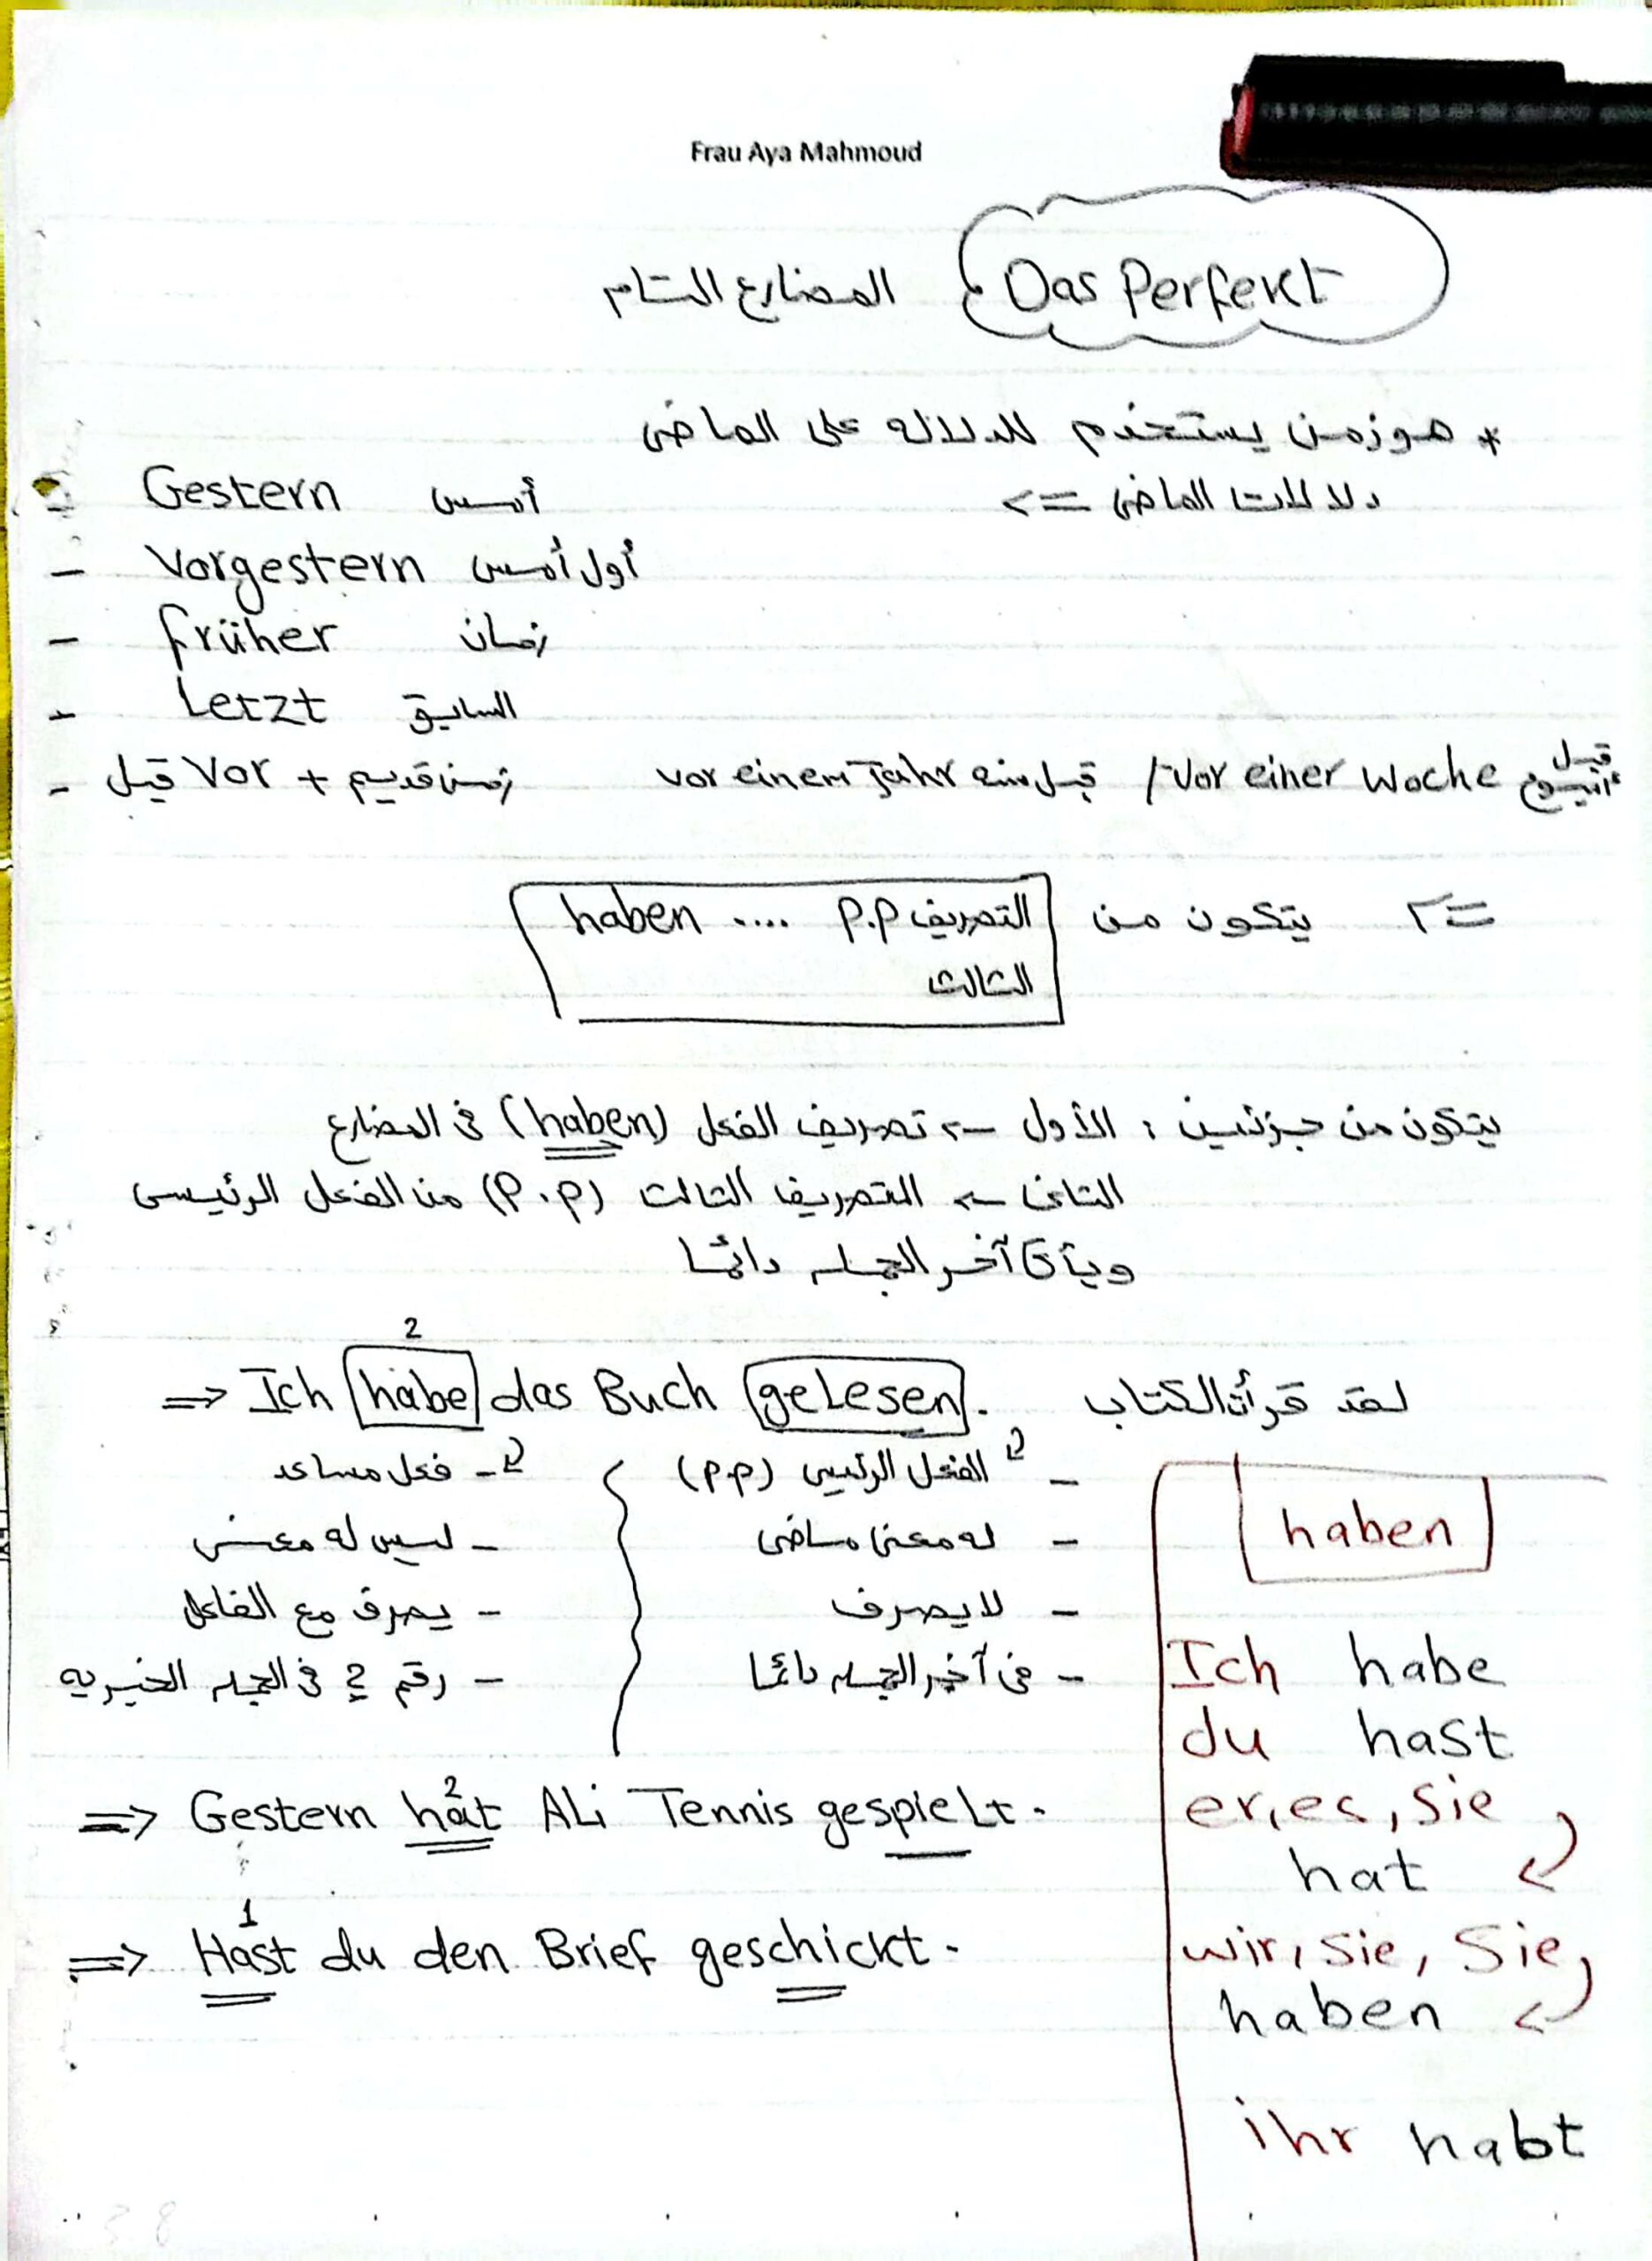 Frau Aya Mahmoud
Das Perfekt المضارع التام
* هو زمن يستخدم للدلاله على الماضى
دلالات الماضى <=
Gestern أمس
- Vorgestern أول أمس
- früher زمان
- Letzt السابق
- قبل Vor + زمن قديم vor einem Jahr قبل سنه / Vor einer Woche قبل أسبوع
=> يتكون من haben .... p.p التصريف
الثالث
يتكون من جزئين : الأول -> تصريف الفعل (haben) فى المضارع
الثانى -> التصريف الثالث (p.p) من الفعل الرئيسى
ويأتى آخر الجمله دائمًا
2
=> Ich habe das Buch gelesen. لقد قرأت الكتاب
- فعل مساعد
- ليس له معنى
- يصرف مع الفاعل
- رقم 2 فى الجمله الخبريه
- الفعل الرئيسى (p.p)
- له معنى ماضى
- لا يصرف
- فى آخر الجمله دائمًا
2
=> Gestern hat Ali Tennis gespielt.
1
=> Hast du den Brief geschickt.
haben
Ich habe
du hast
er, es, sie
hat
wir, sie, Sie
haben
ihr habt